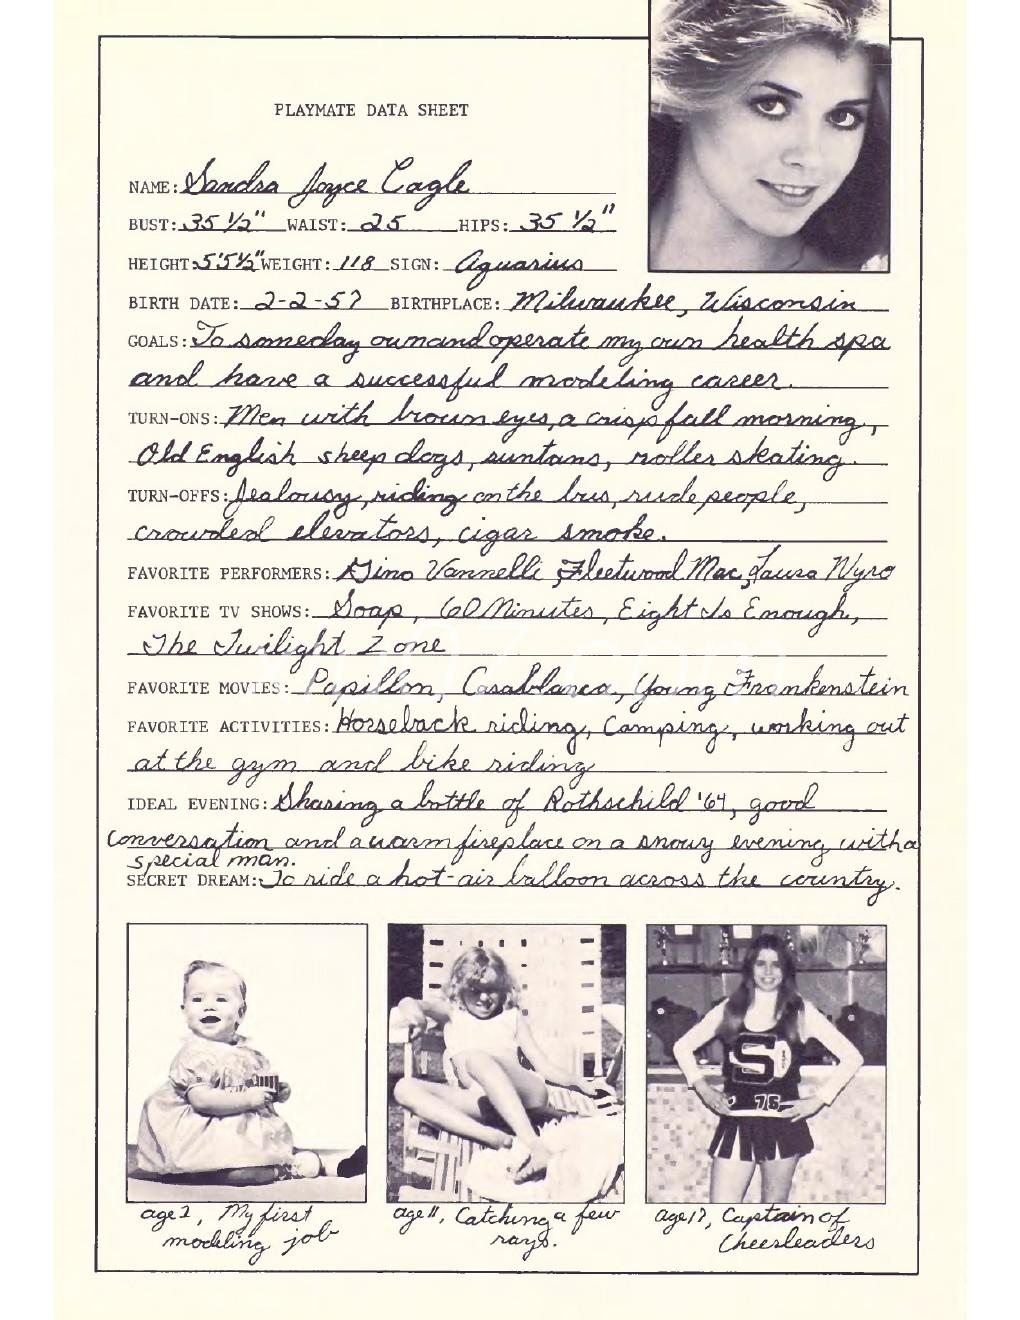 PLAYMATE DATA SHEET
NAME: Sandra Joyce Cagle
BUST: 35 1/2" WAIST: 25 HIPS: 35 1/2"
HEIGHT: 5'5½" WEIGHT: 118 SIGN: Aquarius
BIRTH DATE: 2-2-57 BIRTHPLACE: Milwaukee, Wisconsin
GOALS: To someday own and operate my own health spa
and have a successful modeling career.
TURN-ONS: Men with brown eyes, a crisp fall morning,
Old English sheep dogs, suntans, roller skating.
TURN-OFFS: Jealousy, riding on the bus, rude people,
crowded elevators, cigar smoke.
FAVORITE PERFORMERS: Gino Vannelli, Fleetwood Mac, Laura Nyro
FAVORITE TV SHOWS: Soap, 60 Minutes, Eight Is Enough,
The Twilight Zone
FAVORITE MOVIES: Papillon, Casablanca, Young Frankenstein
FAVORITE ACTIVITIES: Horseback riding, Camping, working out
at the gym and bike riding
IDEAL EVENING: Sharing a bottle of Rothschild '64, good
Conversation and a warm fireplace on a snowy evening with a
special man.
SECRET DREAM: To ride a hot-air balloon across the country.
S
75
age 2, My first
modeling job
age 11, Catching a few
rays.
age 17, Captain of
Cheerleaders